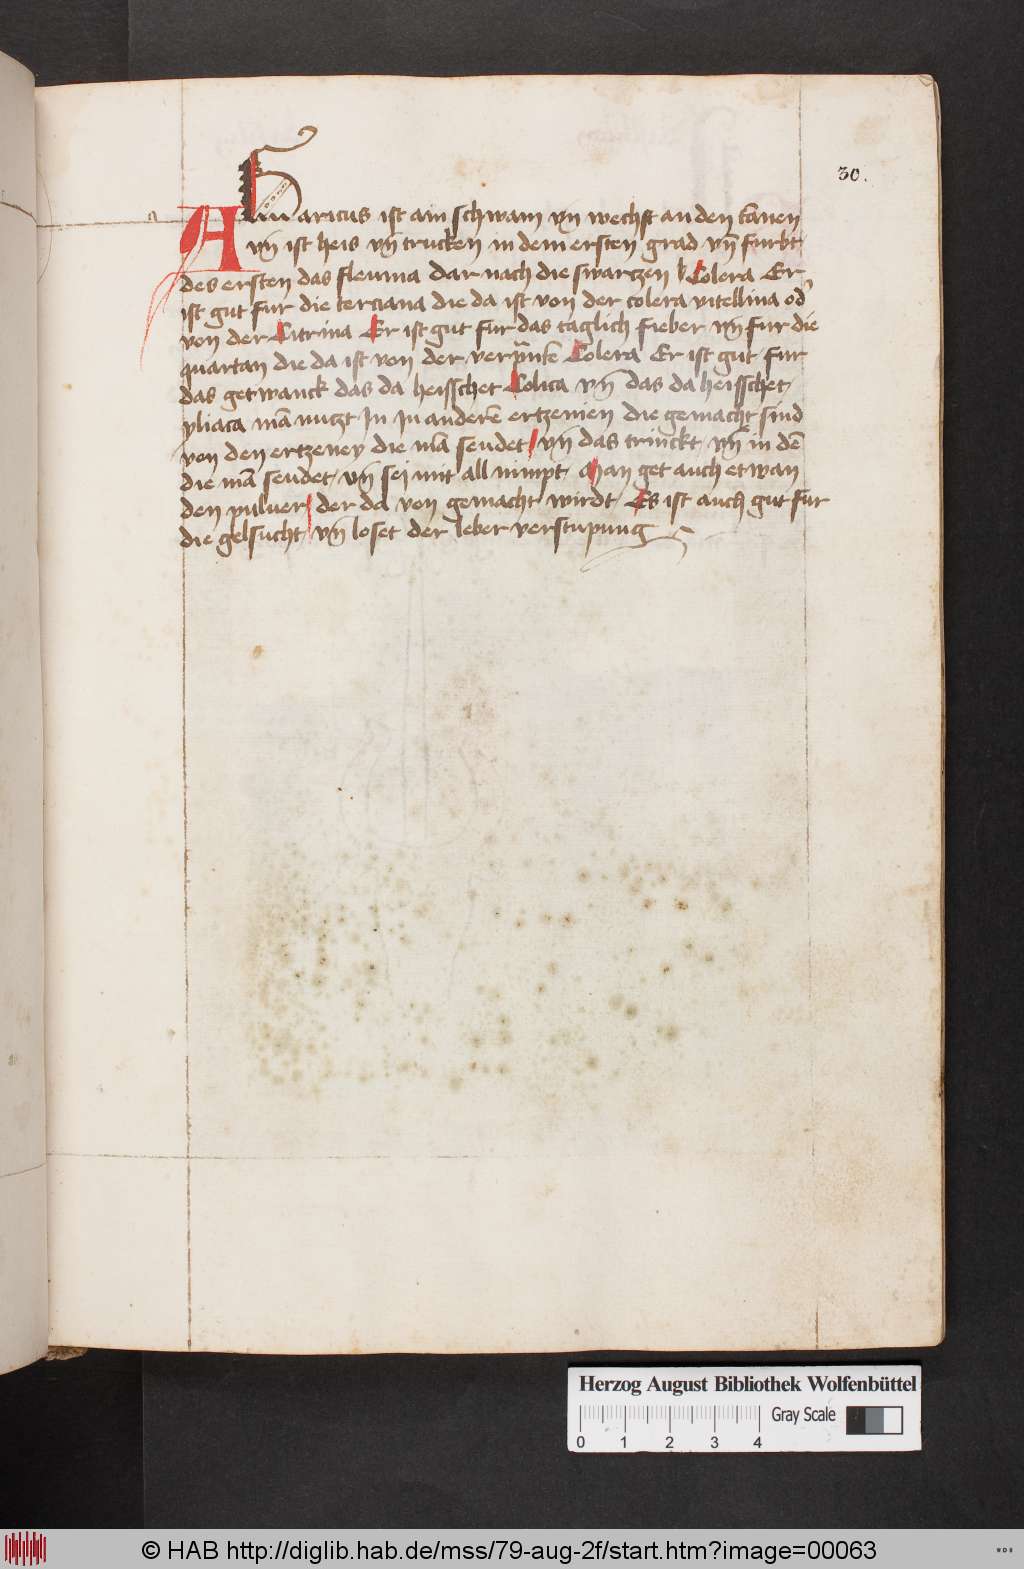 30.
a
Amaricus ist ain schwam vn̄ wechst an den tanen
vn̄ ist heis vn̄ trucken in dem ersten grad vn̄ furbt
des ersten das fleuma dar nach die swartzen Colera Er
ist gut fur die terciana die da ist von der colera vitellina od̛
von der Citrina Er ist gut fur das taglich fieber vn̄ fur die
quartan die da ist von der verprūnten Colera Er ist gut fur
das getwanck das da heisschet Colica vn̄ das da heisschet
yliaca mā nuczt in in anderē ertzenien die gemacht sind
von den ertzeney die mā seudet vn̄ das trinckt vn̄ in dē
die mā seudet vn̄ sej mit all nimpt Man get auch etwan
den puluer der da von gemacht wirdt Es ist auch gut fur
die gelsucht vn̄ loset der leber verstupung
Herzog August Bibliothek Wolfenbüttel
Gray Scale
0 1 2 3 4
© HAB http://diglib.hab.de/mss/79-aug-2f/start.htm?image=00063